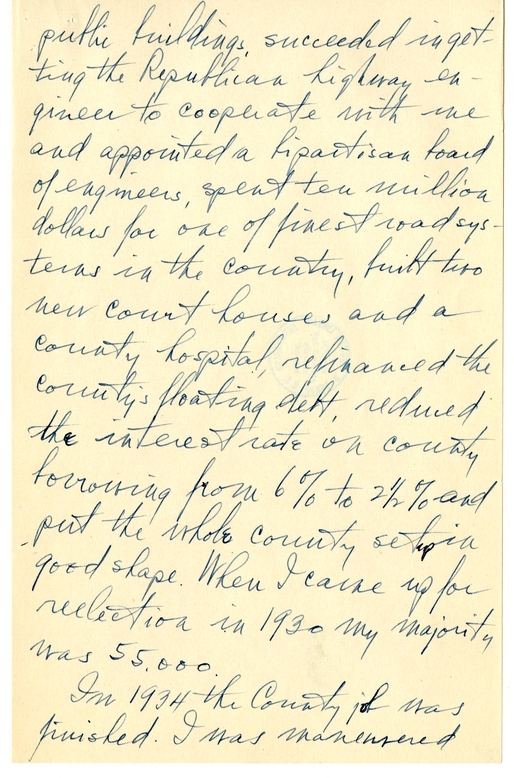 public buildings, succeeded in get-
ting the Republican highway en-
gineer to cooperate with me
and appointed a bipartisan board
of engineers, spent ten million
dollars for one of finest road sys-
tems in the country, built two
new court houses and a
county hospital, refinanced the
county's floating debt, reduced
the interest rate on county
borrowing from 6% to 2½% and
put the whole county setup in
good shape. When I came up for
reelection in 1930 my majority
was 55,000.
In 1934 the County job was
finished. I was maneuvered